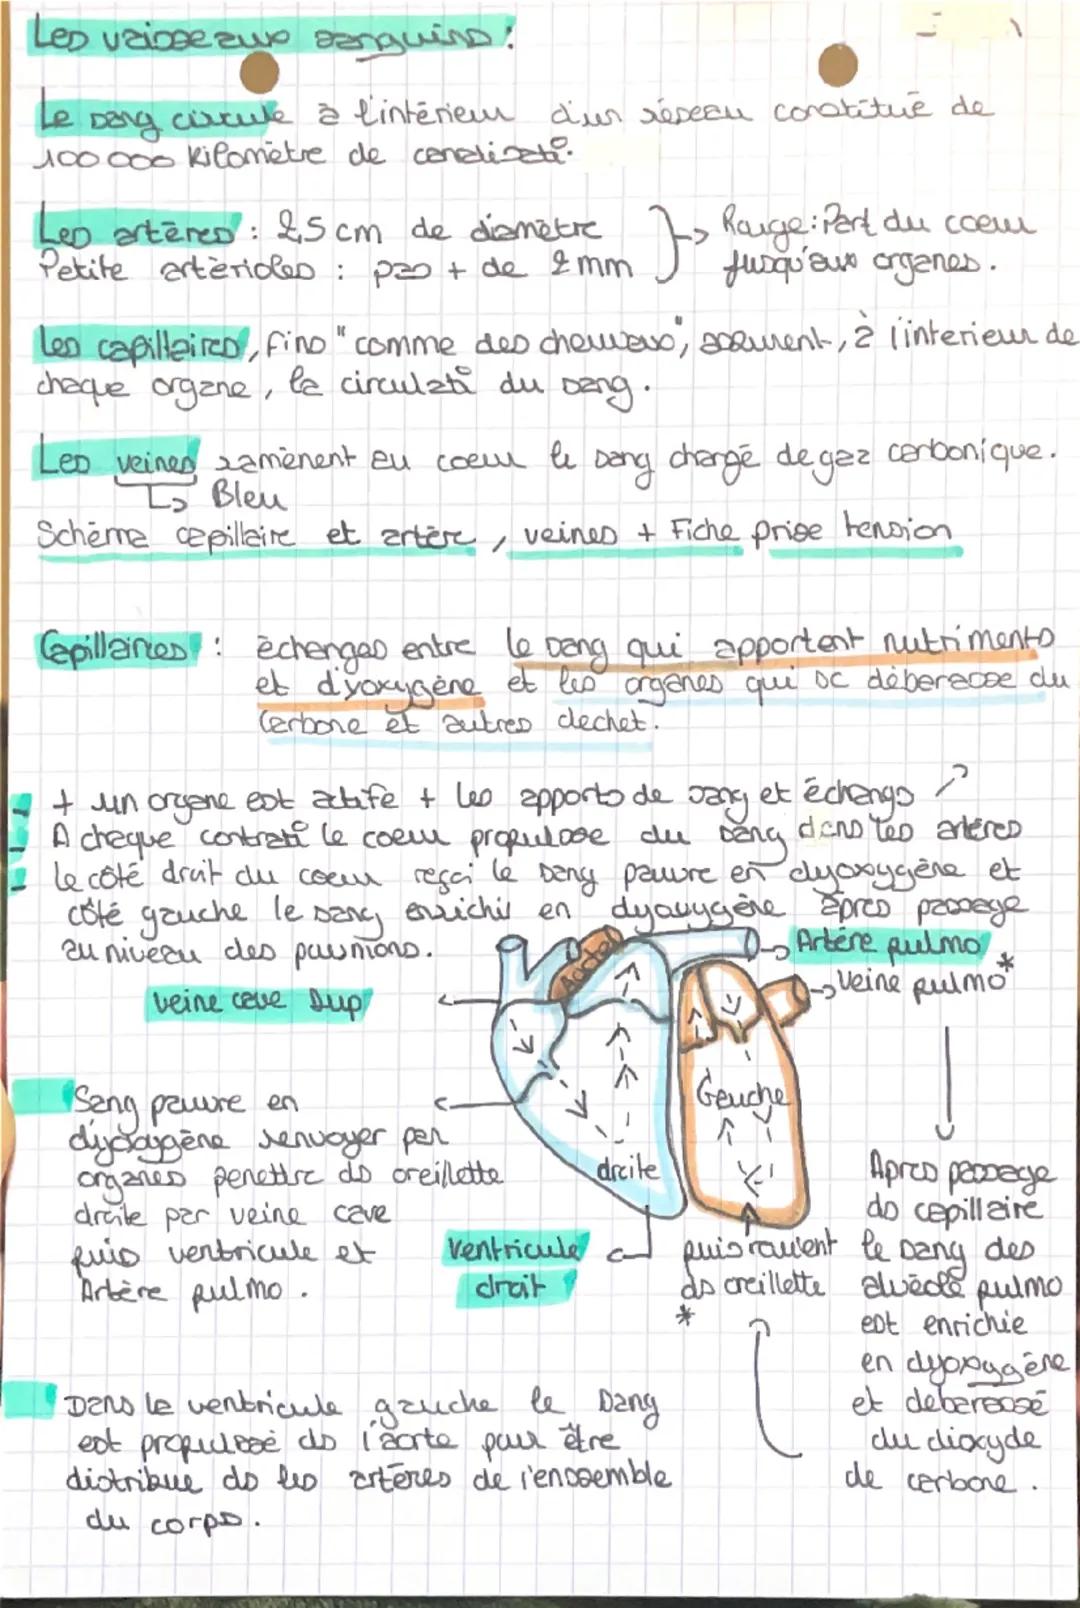 Les vaisseaux sanguins :
Le sang circule à l'intérieur d'un réseau constitué de
100 000 Kilomètre de canalisat°.
Les artères : 2,5 cm de diamètre
Petite artèrioles : pas + de 2 mm
-> Rouge : Part du coeur
jusqu'aux organes.
Les capillaires, fins "comme des cheveux", assurent, à l'interieur de
chaque organe, la circulat° du sang.
Les veines ramènent au coeur le sang chargé de gaz carbonique.
-> Bleu
Schéma capillaire et artère, veines + Fiche prise tension
Capillaires : èchanges entre le sang qui apportent nutriments
et dyoxygène et les organes qui se débarasse du
Carbone et autres dechet.
+ un organe est actife + les apports de sang et échangs ↗
A chaque contract° le coeur propulsse du sang dans les artères
le côté droit du coeur reçoi le sang pauvre en dyoxygène et
côté gauche le sang enrichis en dyoxygène après passage
au niveau des poumons.
Aorte
-> Artère pulmo
-> Veine pulmo*
veine cave sup
Gauche
droite
Sang pauvre en
dyoxygène renvoyer par
organes penettre ds oreillette
droite par veine cave
puis ventricule et
Artère pulmo.
Ventricule
droit
puis revient
ds oreillette
*
Apres passage
ds capillaire
le sang des
alvéole pulmo
est enrichie
en dyoxygène
et debarassé
du dioxyde
de carbone.
Dans le ventricule gauche le sang
est propulssé ds l'aorte pour être
distribue ds les artères de l'enssemble
du corps.